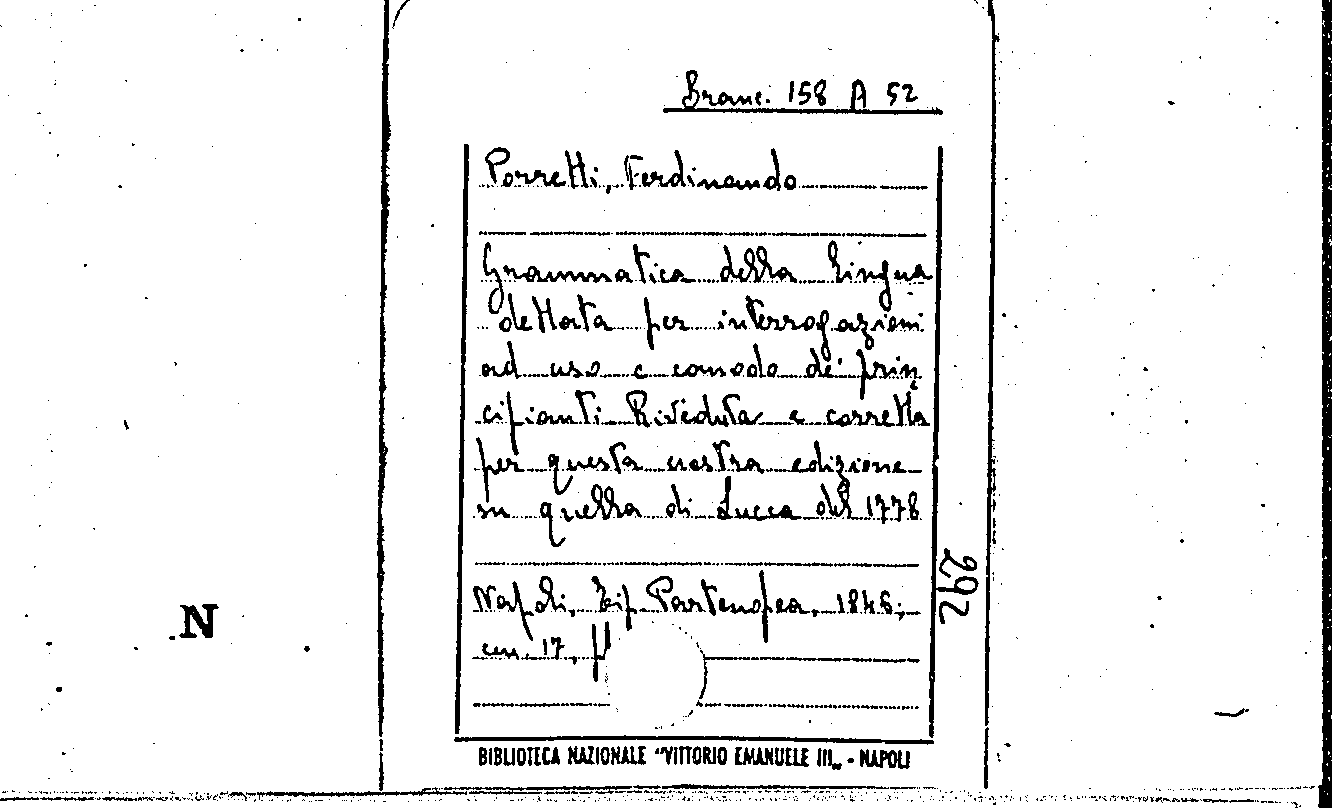 Branc. 158 A 52
Porretti, Ferdinando
Grammatica della lingua
dettata per interrogazioni
ad uso e comodo de' prin
cipianti Riveduta e corretta
per questa nostra edizione
su quella di Lucca del 1778
Napoli, Tip. Partenopea, 1846;
cm. 17, p
292
N
BIBLIOTECA NAZIONALE "VITTORIO EMANUELE III„ - NAPOLI